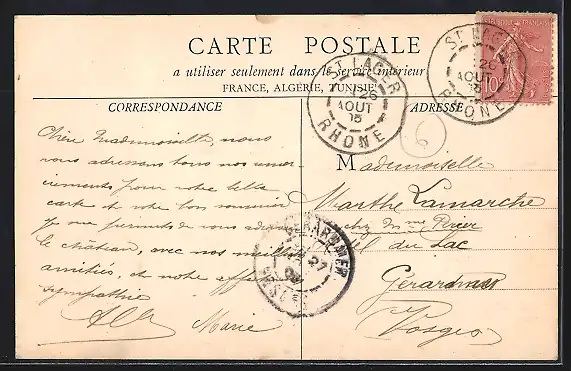 CARTE POSTALE
a utiliser seulement dans le service intérieur
FRANCE, ALGÉRIE, TUNISIE
CORRESPONDANCE
ADRESSE
ST LAGER
26
AOUT
05
RHONE
ST LAGER
26
AOUT
05
RHONE
RÉPUBLIQUE FRANÇAISE
10c
Chère Mademoiselle, nous
vous adressons tous nos remer-
ciements pour votre belle
carte et votre bon souvenir
Je me permets de vous adresser
le château, avec nos meilleures
amitiés, et notre affectueuse
sympathie
Marie
Mademoiselle
Marthe Lamarche
chez Mme
du Lac
Gérardmer
Vosges
GERARDMER
27
VOSGES